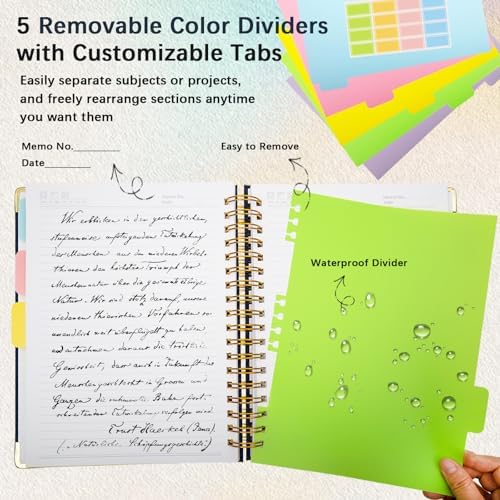 5 Removable Color Dividers
with Customizable Tabs
Easily separate subjects or projects,
and freely rearrange sections anytime
you want them
Memo No.
Date
Easy to Remove
Waterproof Divider
Wir erblicken in der geschichtlichen,
stufenweise aufsteigenden Entwickelung
der Menschen aus den niederen Wirbel-
thieren den höchsten Triumph der
Menschennatur über die gesammte übrige
Natur. Wir sind stolz darauf, unsere
niederen thierischen Vorfahren so
unendlich weit überflügelt zu haben
und entnehmen daraus die tröstliche
Gewissheit, dass auch in Zukunft das
Menschengeschlecht im Grossen und
Ganzen die ruhmvolle Bahn fort-
schreitender Entwickelung verfolgen wird
Ernst Haeckel (Jena).
("Natürliche Schöpfungsgeschichte")